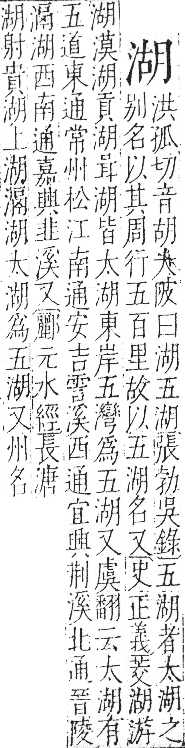 湖
洪孤切音胡大陂曰湖五湖張勃吳錄五湖者太湖之
别名以其周行五百里故以五湖名又史正義菱湖游
湖漠湖貢湖胥湖皆太湖東岸五灣爲五湖又虞翻云太湖有
五道東通常州松江南通安吉霅溪西通宜興荆溪北通晉陵
滆湖西南通嘉興韭溪又酈元水經長溏
湖射貴湖上湖滆湖太湖爲五湖又州名